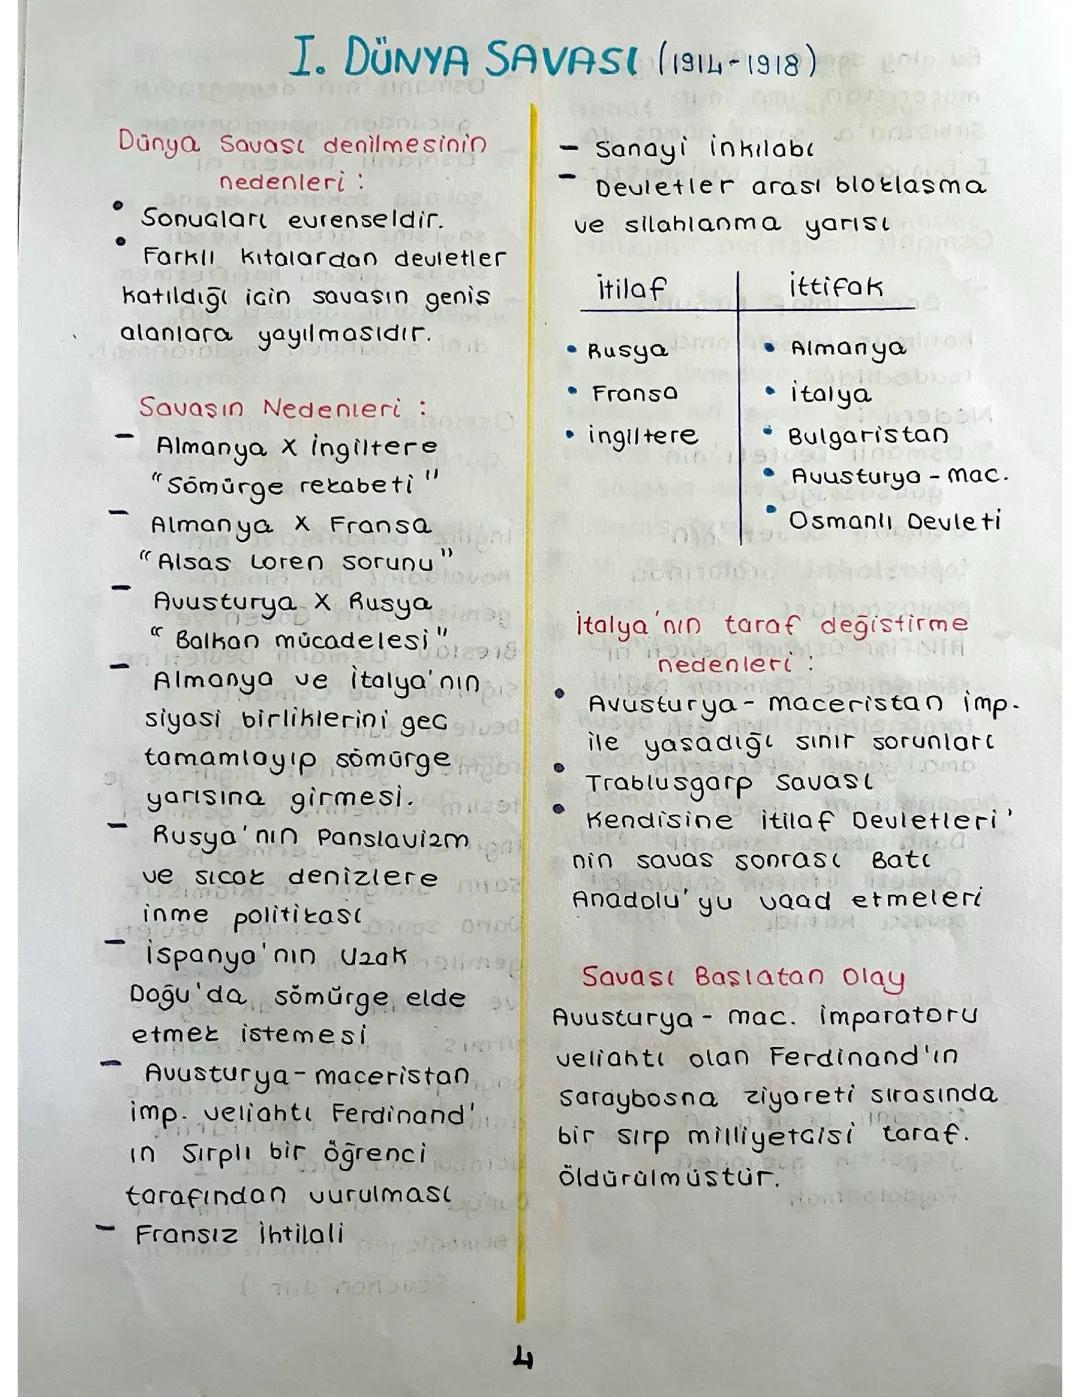 I. DÜNYA SAVASI (1914-1918)
Dünya Savası denilmesinin
nedenleri :
• Sonuçları evrenseldir.
• Farklı kıtalardan devletler
katıldığı icin savasın genis
alanlara yayılmasıdır.
Savasın Nedenleri :
- Almanya X İngiltere
"Sömürge rekabeti"
- Almanya X Fransa
"Alsas Loren sorunu"
- Avusturya X Rusya
"Balkan mücadelesi"
- Almanya ve İtalya'nın
siyasi birliklerini gec
tamamlayıp sömürge
yarısına girmesi.
- Rusya'nın Panslavizm
ve sıcak denizlere
inme politikası
- İspanya'nın Uzak
Doğu'da sömürge elde
etmek istemesi
- Avusturya-maceristan
imp. veliahtı Ferdinand'
ın Sırplı bir öğrenci
tarafından vurulması
- Fransız İhtilali
- Sanayi inkılabı
- Devletler arası bloklasma
ve silahlanma yarısı
İtilaf İttifak
• Rusya • Almanya
• Fransa • İtalya
• İngiltere • Bulgaristan
• Avusturya - mac.
• Osmanlı Devleti
İtalya'nın taraf değistirme
nedenleri :
• Avusturya-maceristan imp.
ile yasadığı sınır sorunları
• Trablusgarp Savası
• Kendisine itilaf Devletleri'
nin savas sonrası Batı
Anadolu'yu vaad etmeleri
Savası Başlatan Olay
Avusturya - mac. imparatoru
veliahtı olan Ferdinand'ın
Saraybosna ziyareti sırasında
bir sırp milliyetçisi taraf.
öldürülmüstür.
4